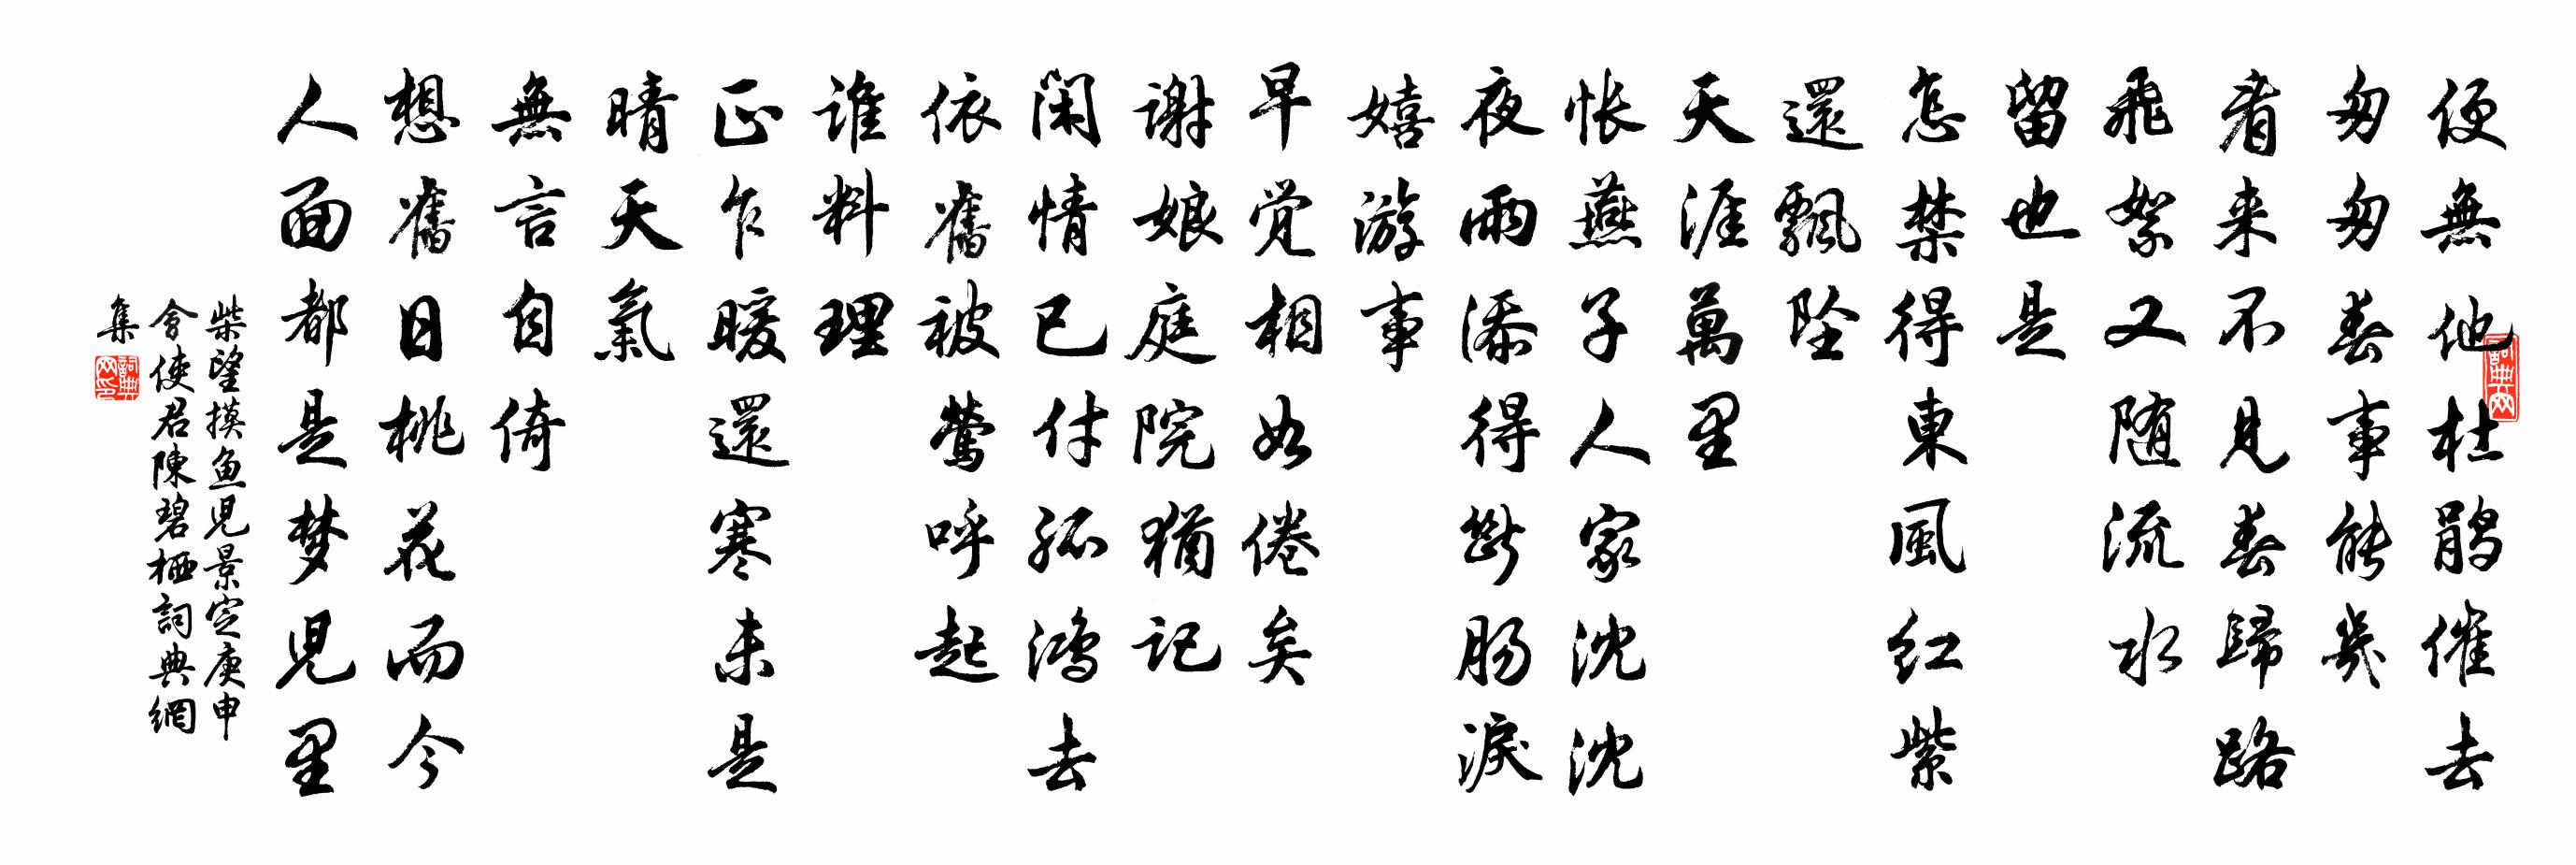 便無他杜鹃催去
匆匆春事能幾
看来不見春歸路
飛絮又随流水
留也是
怎禁得東風红紫
還飄坠
天涯萬里
怅燕子人家沈沈
夜雨添得斷肠淚
嬉游事
早觉相如倦矣
谢娘庭院猶记
闲情已付孤鸿去
依舊被莺呼起
谁料理
正乍暖還寒未是
晴天氣
無言自倚
想舊日桃花而今
人面都是梦儿里
柴望摸鱼儿景定庚申
會使君陳碧栖詞典網
集
詞典网
詞典网印